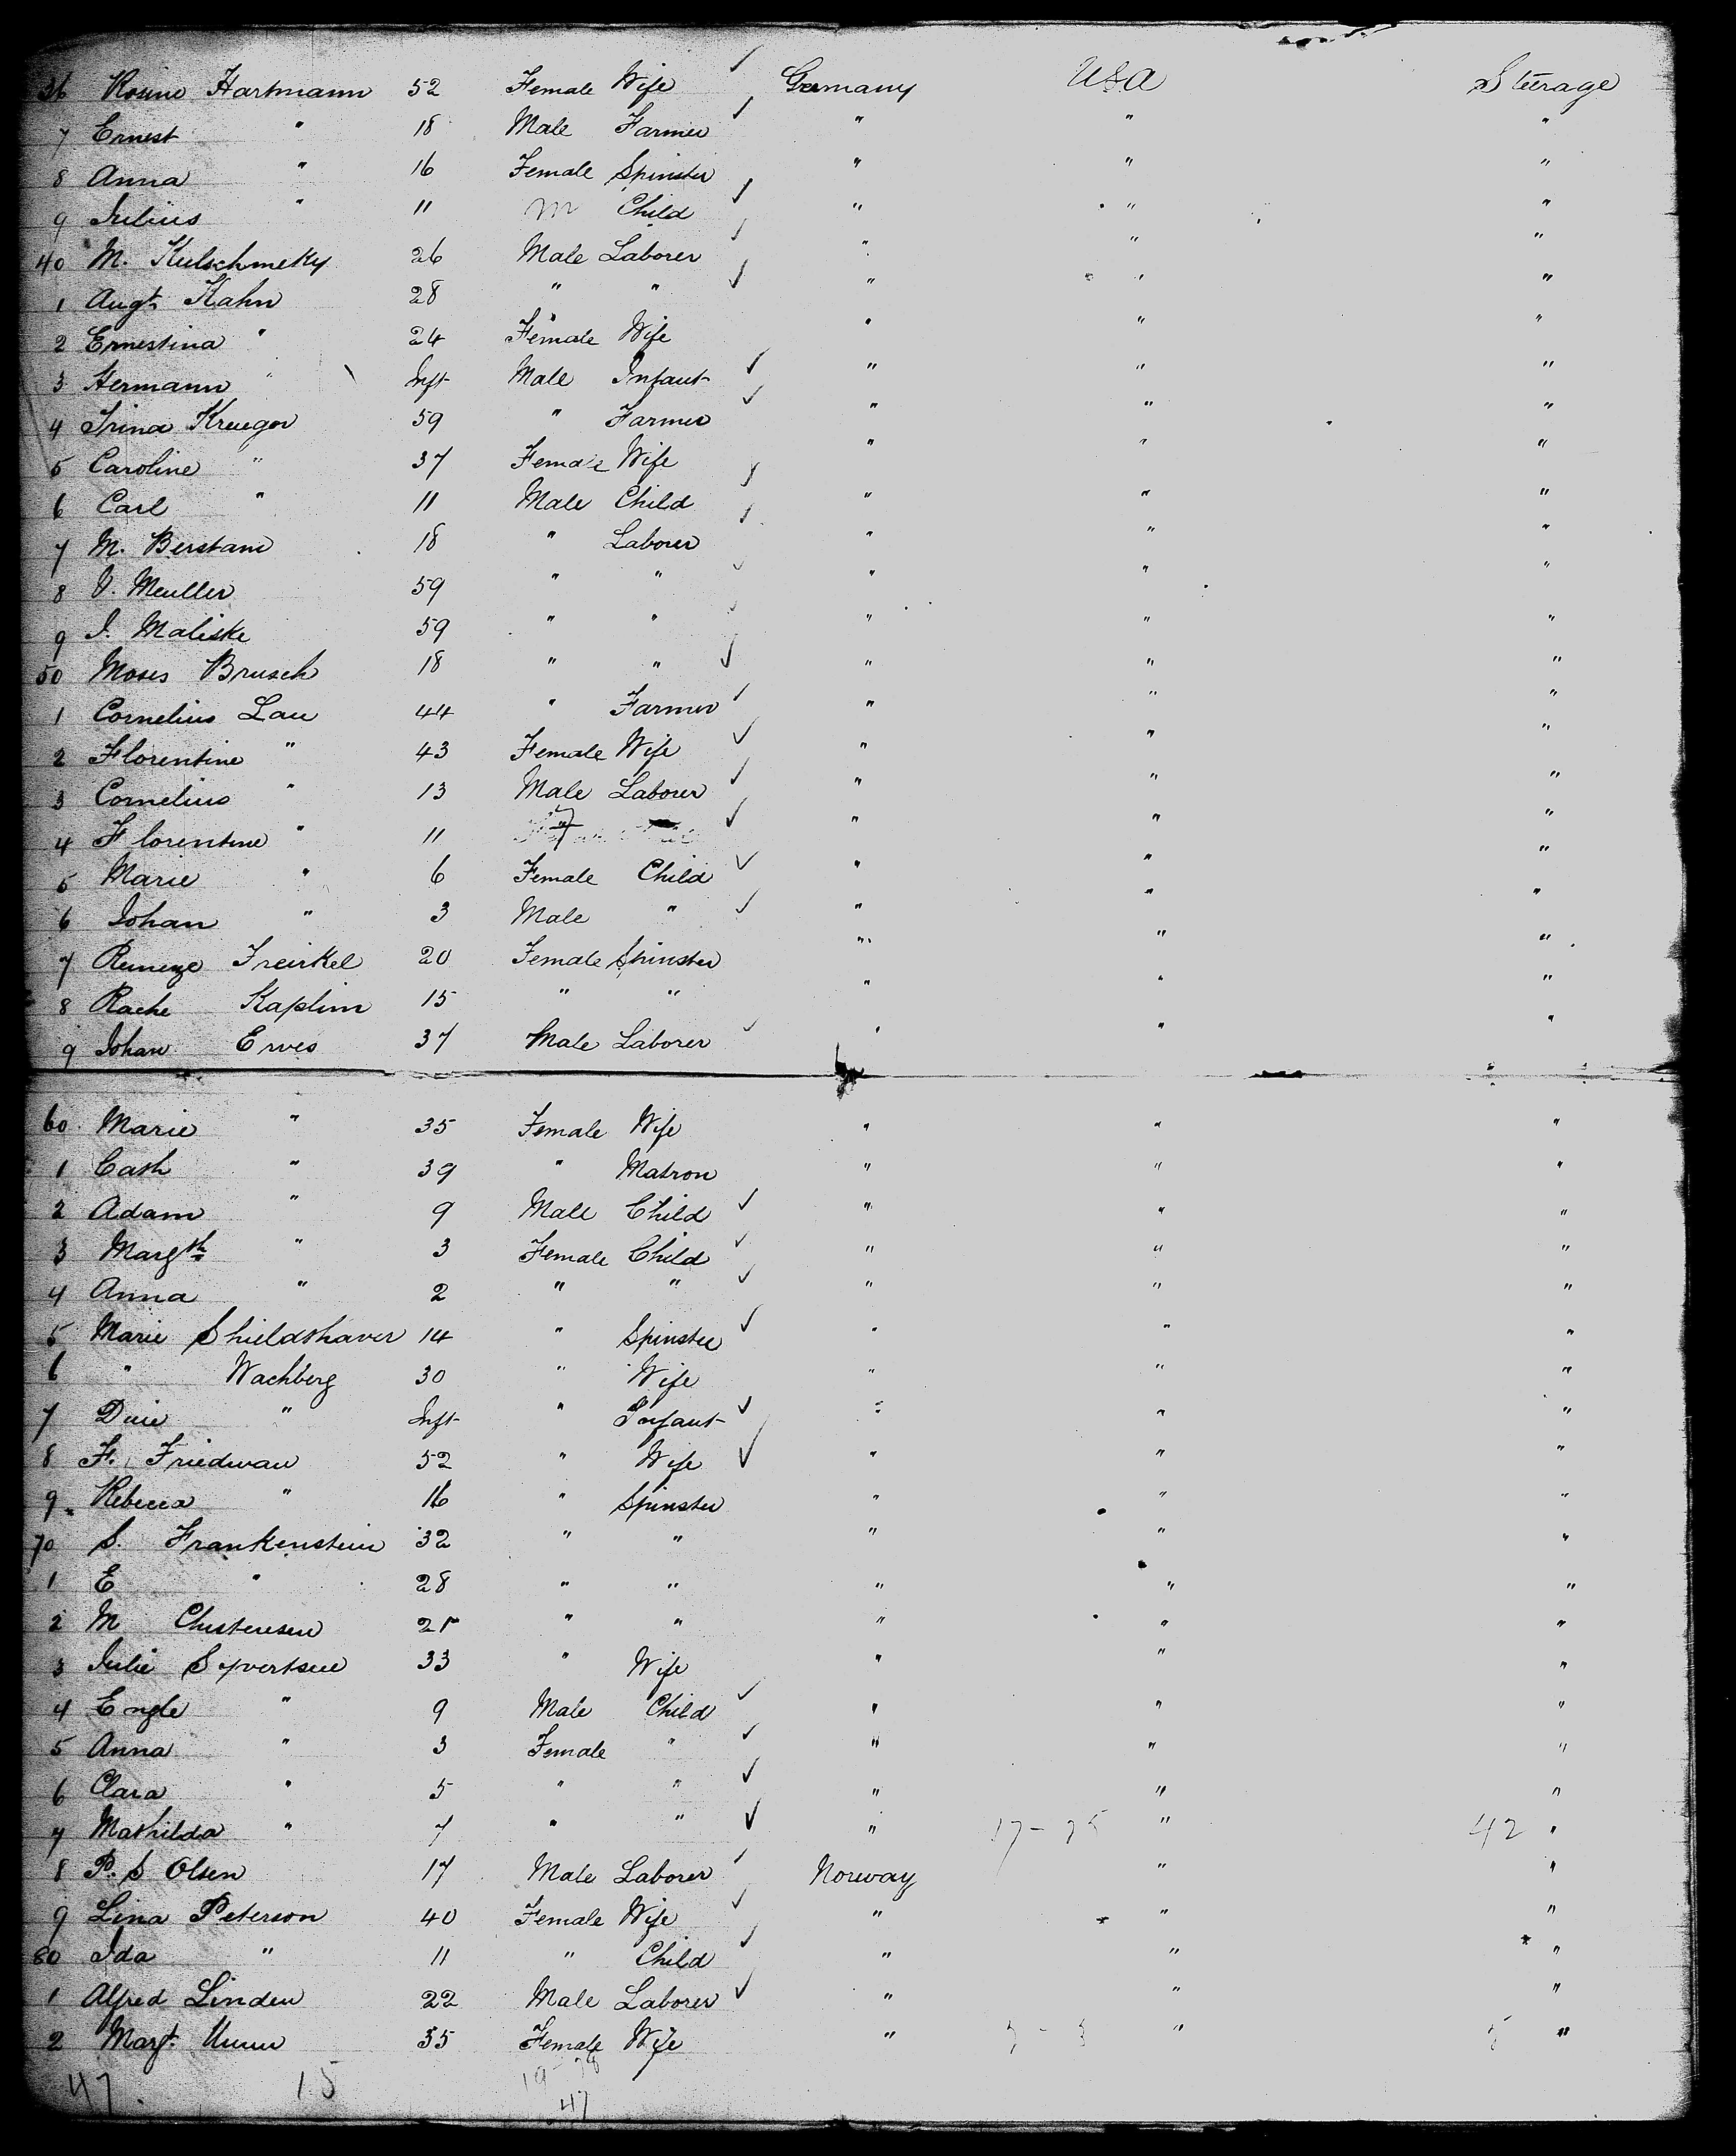 36 Rosine Hartmann 52 Female Wife ✓ Germany USA Steerage
7 Ernest " 18 Male Farmer ✓ " " "
8 Anna " 16 Female Spinster " " "
9 Julius " 11 m Child ✓ " " "
40 M. Kulschmeky 26 Male Laborer ✓ " " "
1 Augt. Kahn 28 " " ✓ " " "
2 Ernestina " 24 Female Wife " " "
3 Hermann " Inft Male Infant ✓ " " "
4 Trina Krueger 59 " Farmer ✓ " " "
5 Caroline " 37 Female Wife ✓ " " "
6 Carl " 11 Male Child ✓ " " "
7 M. Berstam 18 " Laborer " " "
8 V. Meuller 59 " " ✓ " " "
9 J. Maliske 59 " " ✓ " " "
50 Moses Brusch 18 " " ✓ " " "
1 Cornelius Lau 44 " Farmer ✓ " " "
2 Florentine " 43 Female Wife ✓ " " "
3 Cornelius " 13 Male Laborer ✓ " " "
4 Florentine " 11 ✓ " " "
5 Marie " 6 Female Child ✓ " " "
6 Johan " 3 Male " ✓ " " "
7 Freirkel 20 Female Spinster " " "
8 Rache Kaplim 15 " " " " "
9 Johan Erves 37 Male Laborer ✓ " " "
60 Marie " 35 Female Wife " " "
1 Cath " 39 " Matron " " "
2 Adam " 9 Male Child ✓ " " "
3 Margth " 3 Female Child ✓ " " "
4 Anna " 2 " " ✓ " " "
5 Marie Shieldshaver 14 " Spinster ✓ " " "
6 " Wachberg 30 " Wife " " "
7 Duie " Inft " Infant ✓ " " "
8 F. Friedman 52 " Wife ✓ " " "
9 Rebecca " 16 " Spinster " " "
70 S. Frankenstein 32 " " " " "
1 E " 28 " " " " "
2 M Christensen " " " " "
3 Julie Syvertsen 33 " Wife " " "
4 Engle " 9 Male Child ✓ " " "
5 Anna " 3 Female " ✓ " " "
6 Clara " 5 " " ✓ " " "
7 Mathilda " 7 " " ✓ " " 42 "
8 P. S Olsen 17 Male Laborer ✓ Norway " "
9 Lina Peterson 40 Female Wife ✓ " " "
80 Ida " 11 " Child ✓ " " "
1 Alfred Linden 22 Male Laborer ✓ " " "
2 Margt. 35 Female Wife " " "
47 15
47